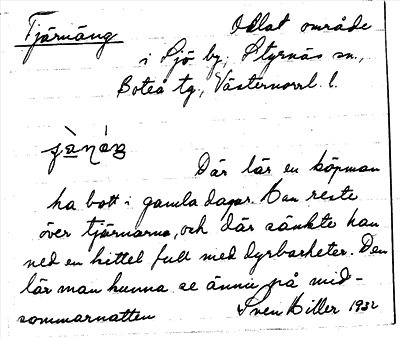 Tjärnäng
Odlat område
i Sjö by, Styrnäs sn.,
Boteå tg, Västernorrl. l.
Där lär en köpman
ha bott i gamla dagar. Han reste
över tjärnarna, och där sänkte han
ned en kittel full med dyrbarheter. Den
lär man kunna se ännu på mid-
sommarnatten
Sven Hiller 1932